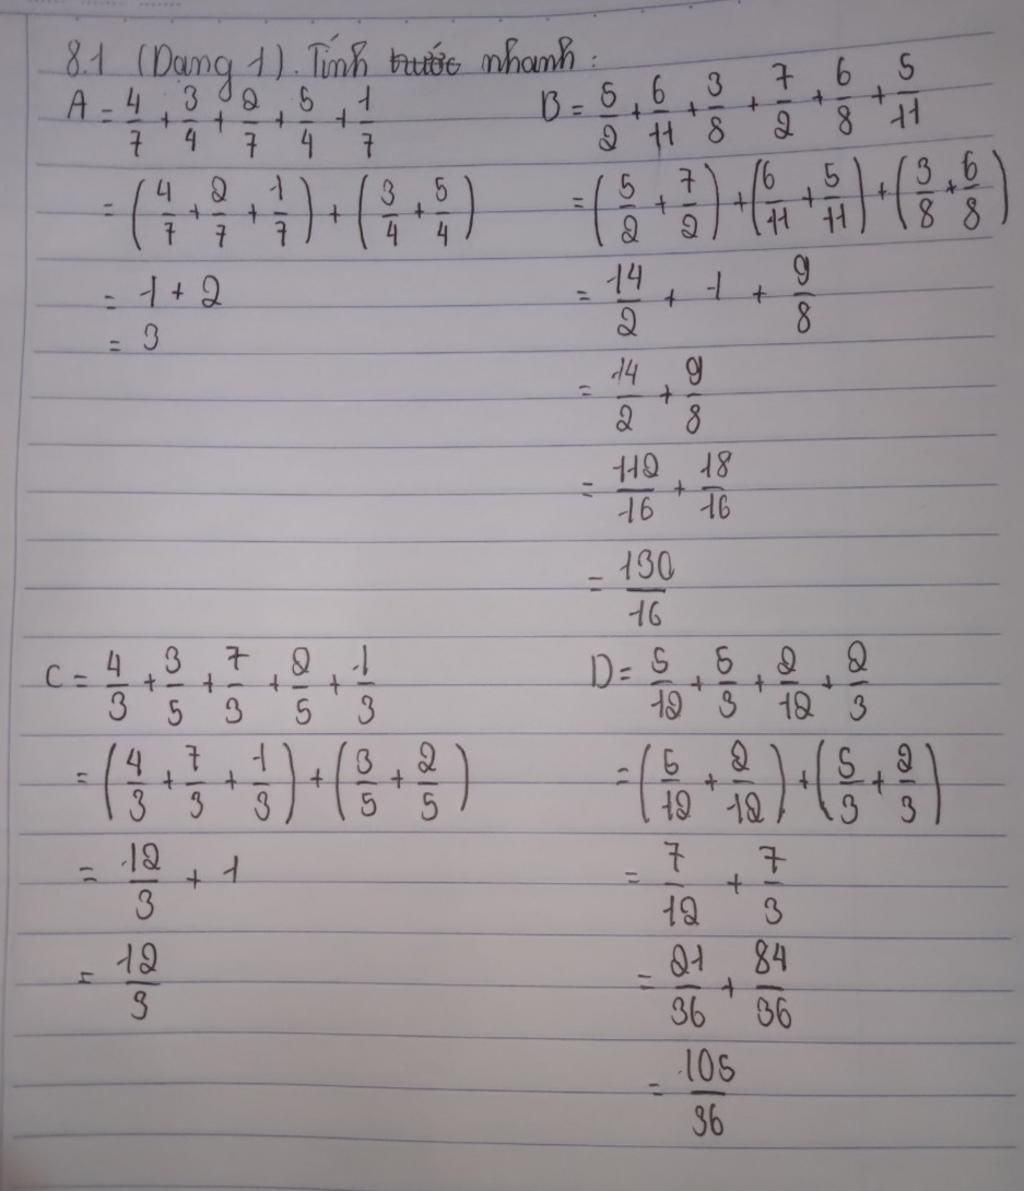 8.1 (Dạng 1). Tính trước nhanh:
A = 4/7 + 3/4 + 2/7 + 5/4 + 1/7
= (4/7 + 2/7 + 1/7) + (3/4 + 5/4)
= 1 + 2
= 3
B = 5/2 + 6/11 + 3/8 + 7/2 + 6/8 + 5/11
= (5/2 + 7/2) + (6/11 + 5/11) + (3/8 + 6/8)
= 14/2 + 1 + 9/8
= 14/2 + 9/8
= 112/16 + 18/16
= 130/16
C = 4/3 + 3/5 + 7/3 + 2/5 + 1/3
= (4/3 + 7/3 + 1/3) + (3/5 + 2/5)
= 12/3 + 1
= 12/3
D = 5/12 + 5/3 + 2/12 + 2/3
= (5/12 + 2/12) + (5/3 + 2/3)
= 7/12 + 7/3
= 21/36 + 84/36
= 105/36